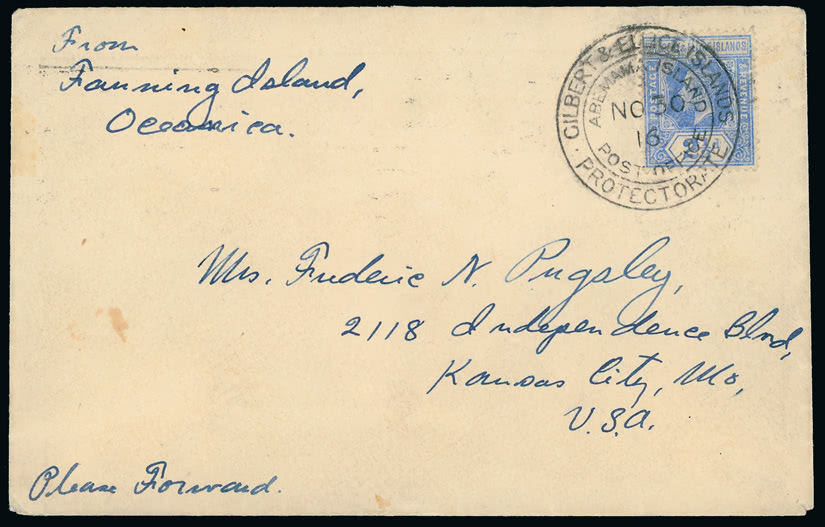 From
Fanning Island,
Oceanica.
GILBERT & ELLICE ISLANDS
ABEMAMA ISLAND
NO 30
16
POST OFFICE
PROTECTORATE
ISLANDS
POSTAGE
& REVENUE
Mrs. Frederic N. Pugsley,
2118 Independence Blvd,
Kansas City, Mo,
U.S.A.
Please Forward.